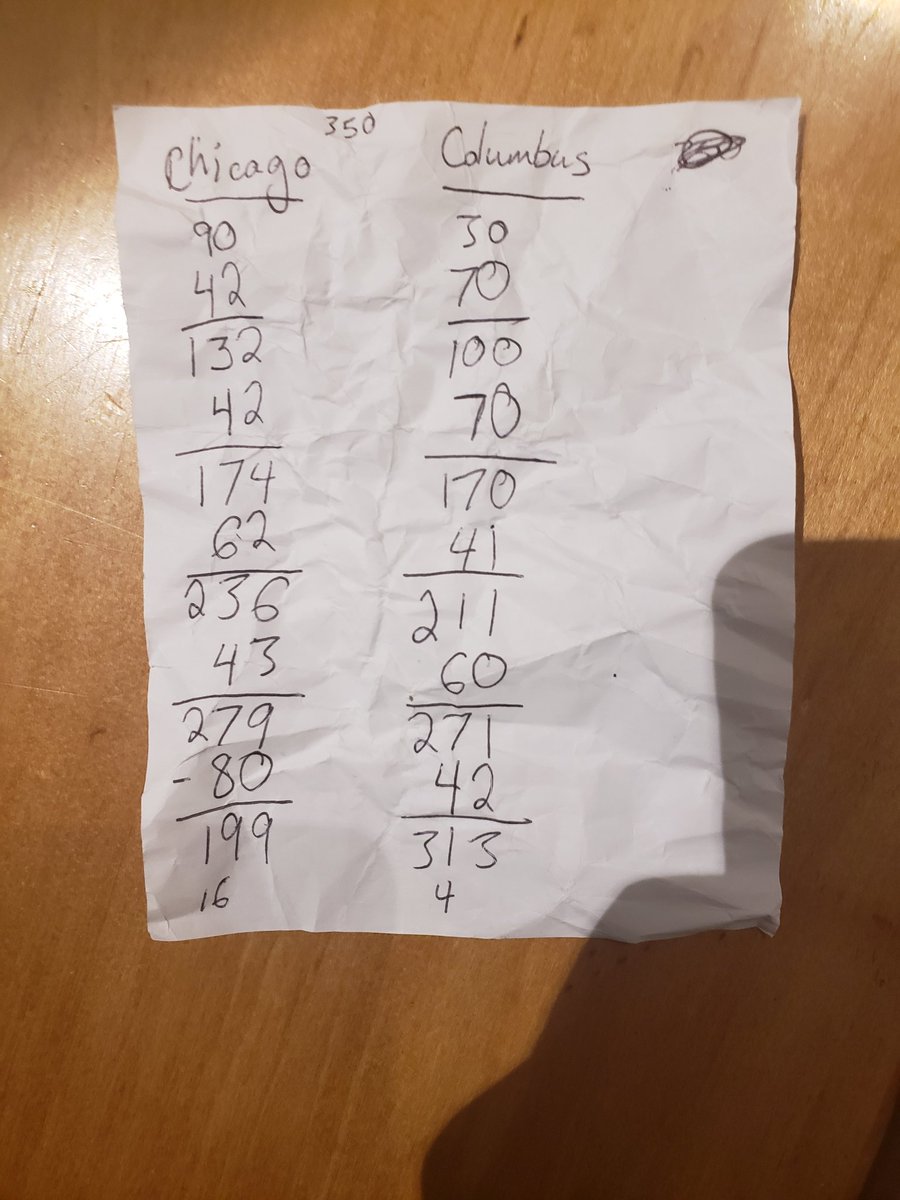 350
Chicago Columbus
90 30
42 70
132 100
42 70
174 170
62 41
236 211
43 60
279 271
-80 42
199 313
16 4